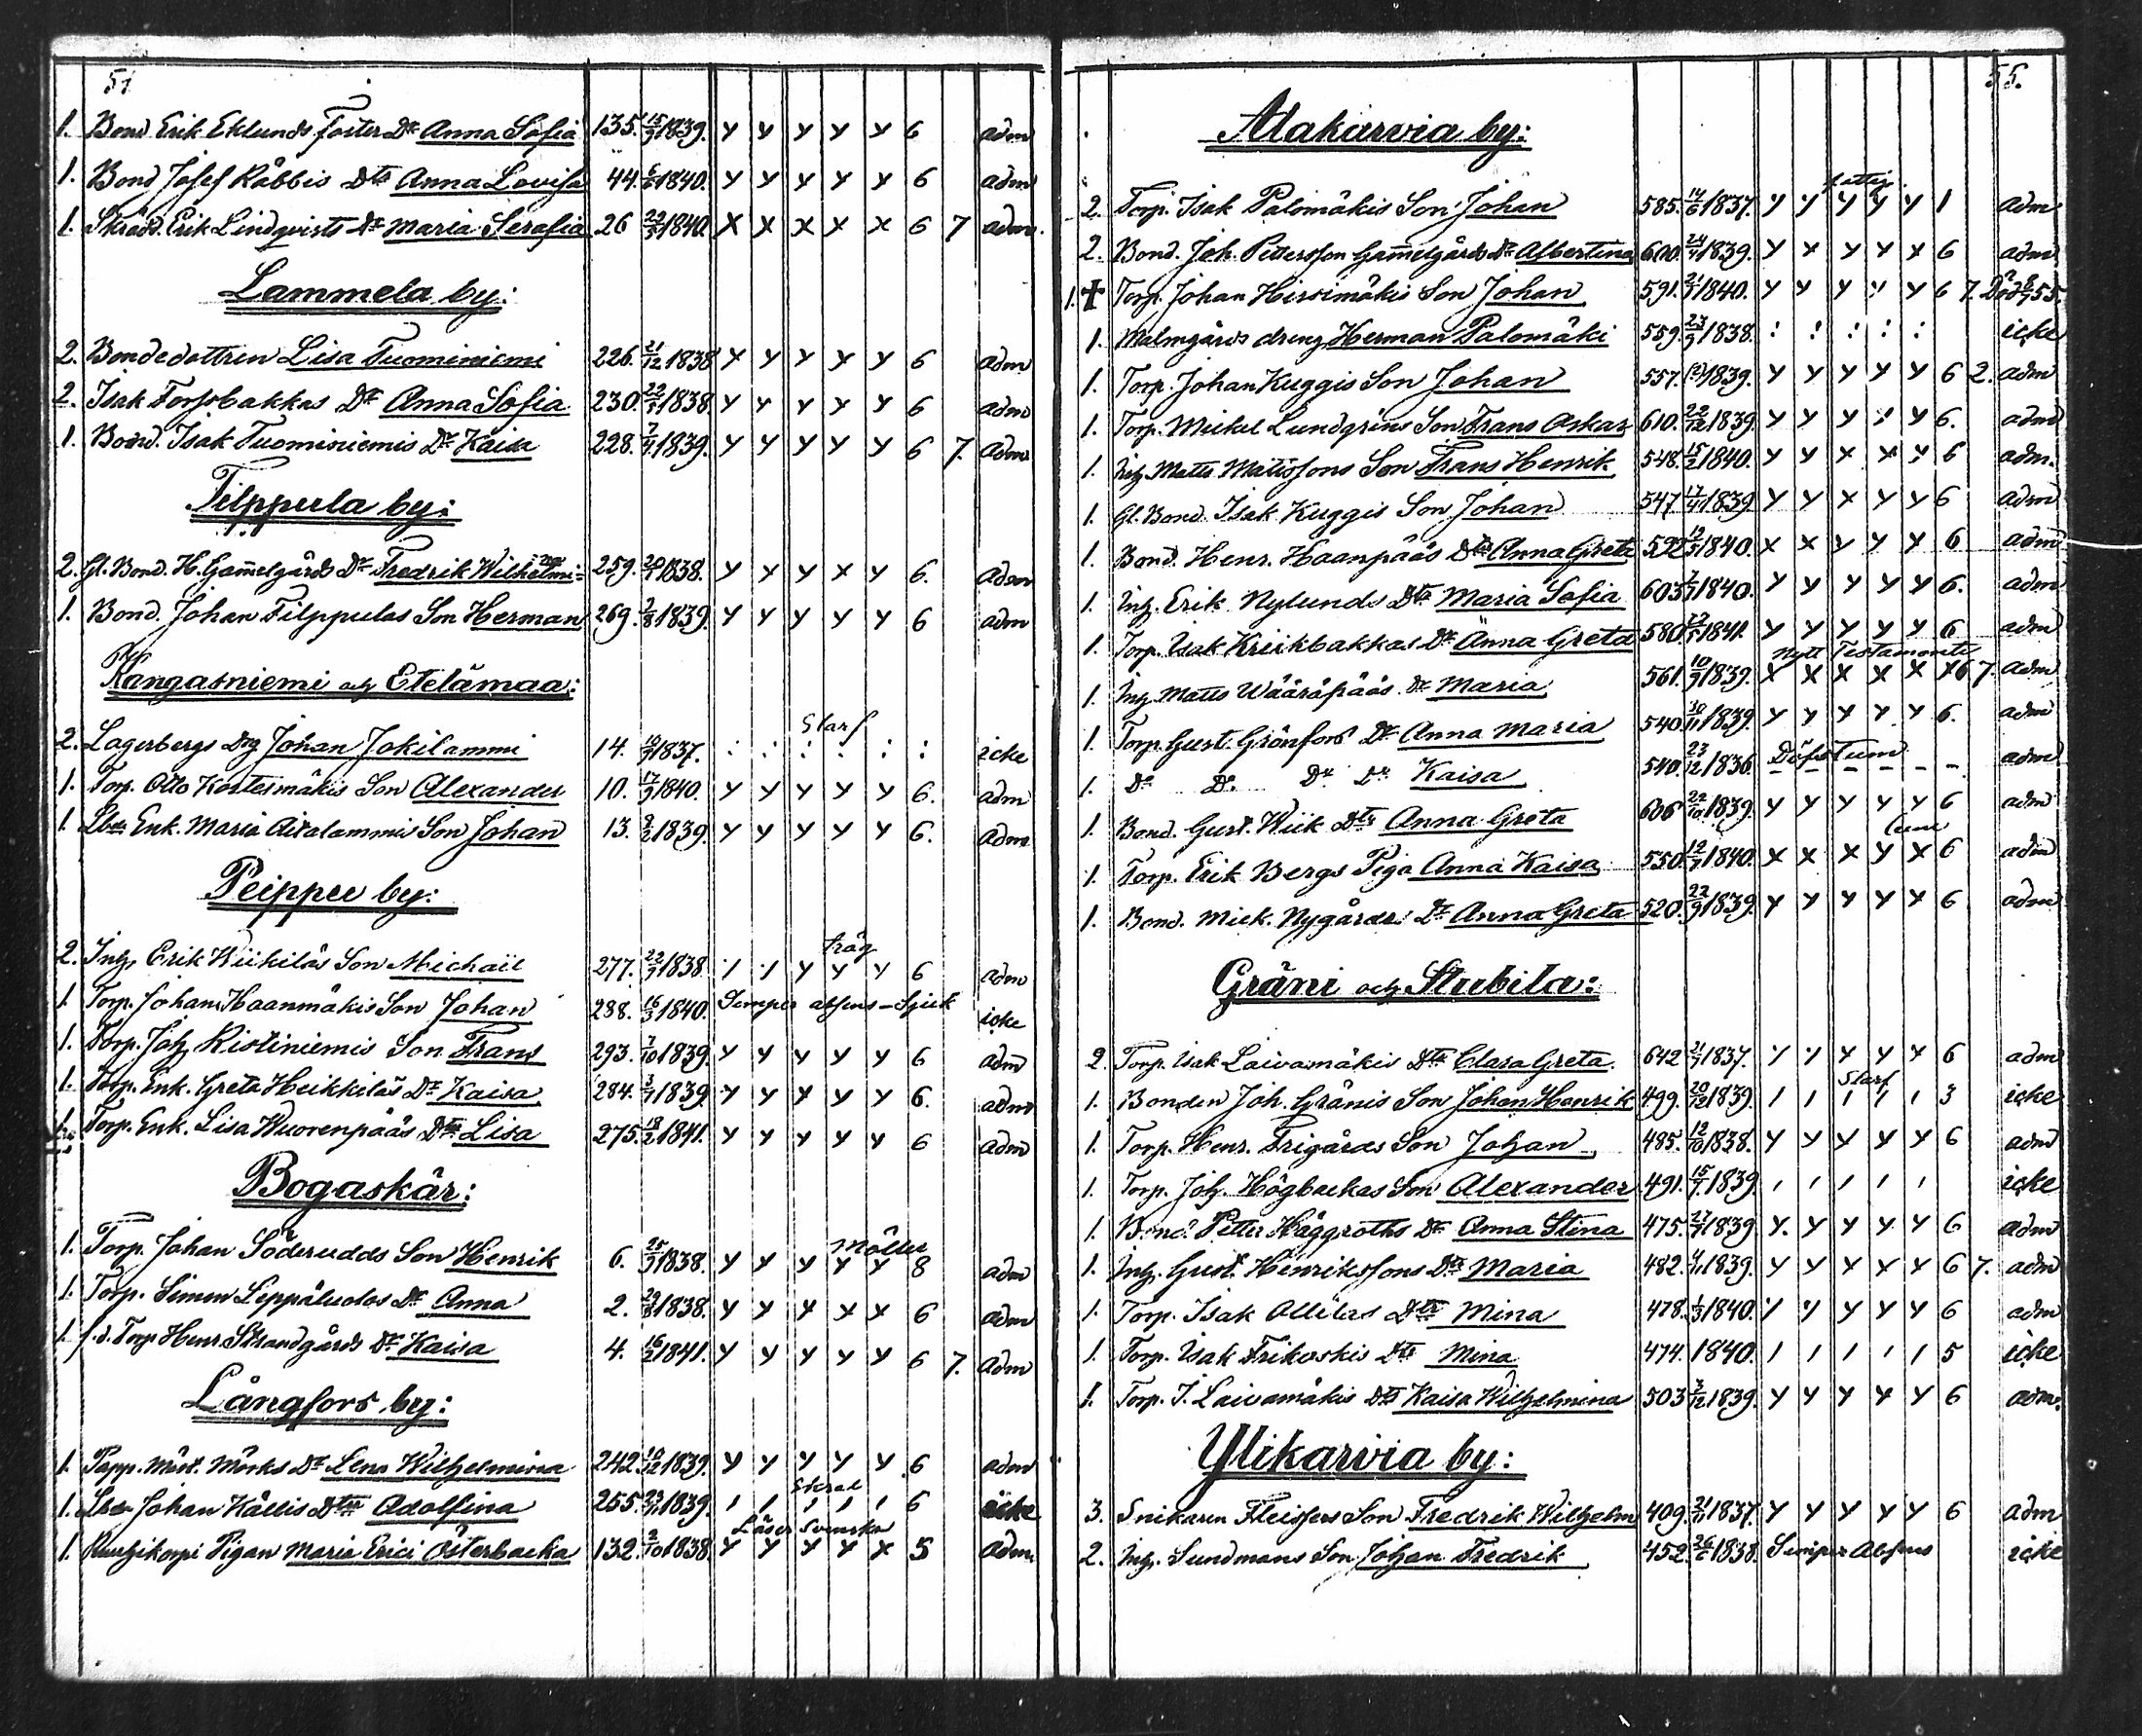 1. Bond Erik Eklunds foster Dr Anna Sofia 135. 15/9 1839. y y y y y 6 adm
1. Bond Josef Råbbis Dtr Anna Lovisa 44. 6/6 1840. y y y y y 6 adm
1. Skrädd. Erik Lindqvists Dr Maria Serafia 26 22/3 1840. x x x x x 6 7 adm.
Lammela by:
2. Bondedottren Lisa Tuominiemi 226. 21/12 1838 x y y y y 6 adm
2. Isak Forssbakkas Dr Anna Sofia 230. 22/5 1838 y y y y y 6 adm
1. Bond. Isak Tuominiemis Dr Kaisa 228. 7/4 1839. y y y y y 6 7. adm
Filppula by:
2. Gl. Bond. H. Gammelgårds Dr Fredrik Wilhelmina 259. 1838. y x y x y 6. adm
1. Bond. Johan Filppulas Son Herman 269. 2/8 1839. y y y y y 6 adm
Kangasniemi och Etelämaa:
Slarf
2. Lagerbergs Drg Johan Jokilammi 14. 1837. : : : : : : icke
1. Torp. Otto Kortesmäkis Son Alexander 10. 17/9 1840. y y y y y 6. adm
1. Enk. Maria Son Johan 13. 8/2 1839. y y y y y 6. adm
Peippu by:
trög
2. Inh. Erik Wiikiläs Son Michaël 277. 22/9 1838 y y y 6 adm
1. Torp. Johan Haanmäkis Son Johan 288. 16/3 1840. Semper absens - Sjuk icke
1. Torp. Joh. Ristiniemis Son Frans 293. 7/10 1839. y y y y y 6 adm
1. Torp. Enk. Greta Heikkiläs Dr Kaisa 284. 3/7 1839. y y y y y 6. adm
1. Torp. Enk. Lisa Wuorenpääs Dtr Lisa 275. 18/2 1841. y y y y y 6 adm
Bogaskär:
1. Torp. Johan Söderudds Son Henrik 6. 25/3 1838. y y y y y 8 adm
1. Torp. Simon Leppäluotos Dr Anna 2. 1838. y y x x x 6 adm
1. f.d. Torp Henr Strandgårds Dr Kaisa 4. 16/2 1841. y y y y y 6 7. adm
Långfors by:
1. Papp. Mäst. Mörks Dr Lena Wilhelmina 242. 10/12 1839. y y y y y 6 adm
1. Johan Kållis Dtr Adolfina 255. 1839. / / / / / 6 icke
Läser Svenska
1. Pigan Maria Erici Österbacka 132. 2/10 1838 y y y y x 5 adm.
55.
Alakarvia by:
2. Torp. Isak Palomäkis Son Johan 585. 14/6 1837. y y y y y 1 adm
2. Bond. Joh. Pettersson Gammelgårds Dr Albertina 600. 24/4 1839. y x y x x 6 adm
1. † Torp. Johan Hirsimäkis Son Johan 591. 21/7 1840. y y y y 6 7. Död 55.
1. Malmgårds dreng Herman Palomäki 559. 23/9 1838. : : : : : icke
1. Torp. Johan Kuggis Son Johan 557. 1839. y y y y y 6 2. adm
1. Torp. Mickel Lundgrins Son Frans Oskar 610. 22/12 1839. y y y y 6. adm
1. Inh. Matts Matissons Son Frans Henrik 548. 15/2 1840. y y x x y 6 adm.
1. Gl. Bond. Isak Kuggis Son Johan 547 17/4 1839 y y x y y 6 adm
1. Bond. Henr. Haanpääs Dtr Anna Greta 592 12/5 1840. x x y y x 6 adm
1. Inh. Erik Nylunds Dtr Maria Sofia 603 1840. y y y y y 6. adm
1. Torp. Isak Kriikbakkas Dr Anna Greta 580 1841. y y y y y 6 adm
Nytt Testamente
1. Inh. Matts Wääräpääs Dr Maria 561. 10/9 1839. x x x x x x 6 7. adm
1. Torp. Gust. Grönfors Dr Anna Maria 540. 1839. y y y y y 6. adm
1. Do Do Do Dr Kaisa 540. 23/12 1836. Döfstum adm
1. Bond. Gust. Wiik Dtr Anna Greta 606 22/10 1839. y y y y y 6 adm
1. Torp. Erik Bergs Piga Anna Kaisa 550. 1840. x x x y x 6 adm
1. Bond. Mick. Nygårds Dr Anna Greta 520. 22/9 1839. y y y y y 6 adm
Gräni och Stubila:
2. Torp. Isak Laivamäkis Dtr Clara Greta 642 1837. y y x y x 6 adm
Slarf
1. Bonden Joh. Gränis Son Johan Henrik 499. 20/12 1839. / / / / / 3 icke
1. Torp. Henr. Frigårds Son Johan 485. 12/10 1838. y y y y y 6 adm
1. Torp. Joh. Högbackas Son Alexander 491. 15/7 1839. / / / / / icke
1. Bond. Petter Häggroths Dr Anna Stina 475. 27/7 1839 y. y y y y 6 adm
1. Inh. Gust. Henrikssons Dtr Maria 482. 1839. y y y y y 6 7. adm
1. Torp. Isak Ollilas Dtr Mina 478. 1840. y y y y y 6 adm
1. Torp. Isak Frikoskis Dtr Mina 474. 1840. / / / / / 5 icke
1. Torp. I. Laivamäkis Dtr Kaisa Wilhelmina 503 3/12 1839. y y y y y 6 adm.
Ylikarvia by:
3. Snikaren Fleissers Son Fredrik Wilhelm 409. 1837. y y y y y 6 adm
2. Inh. Sundmans Son Johan Fredrik 452. 1838. Semper Absens icke